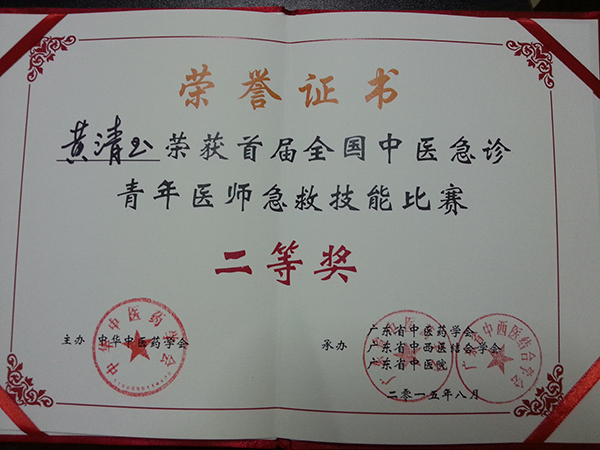 荣誉证书
黄清玉荣获首届全国中医急诊
青年医师急救技能比赛
二等奖
主办 中华中医药学会
承办 广东省中医药学会
广东省中西医结合学会
广东省中医院
二〇一五年八月
中华中医药学会
广东省中西医结合学会